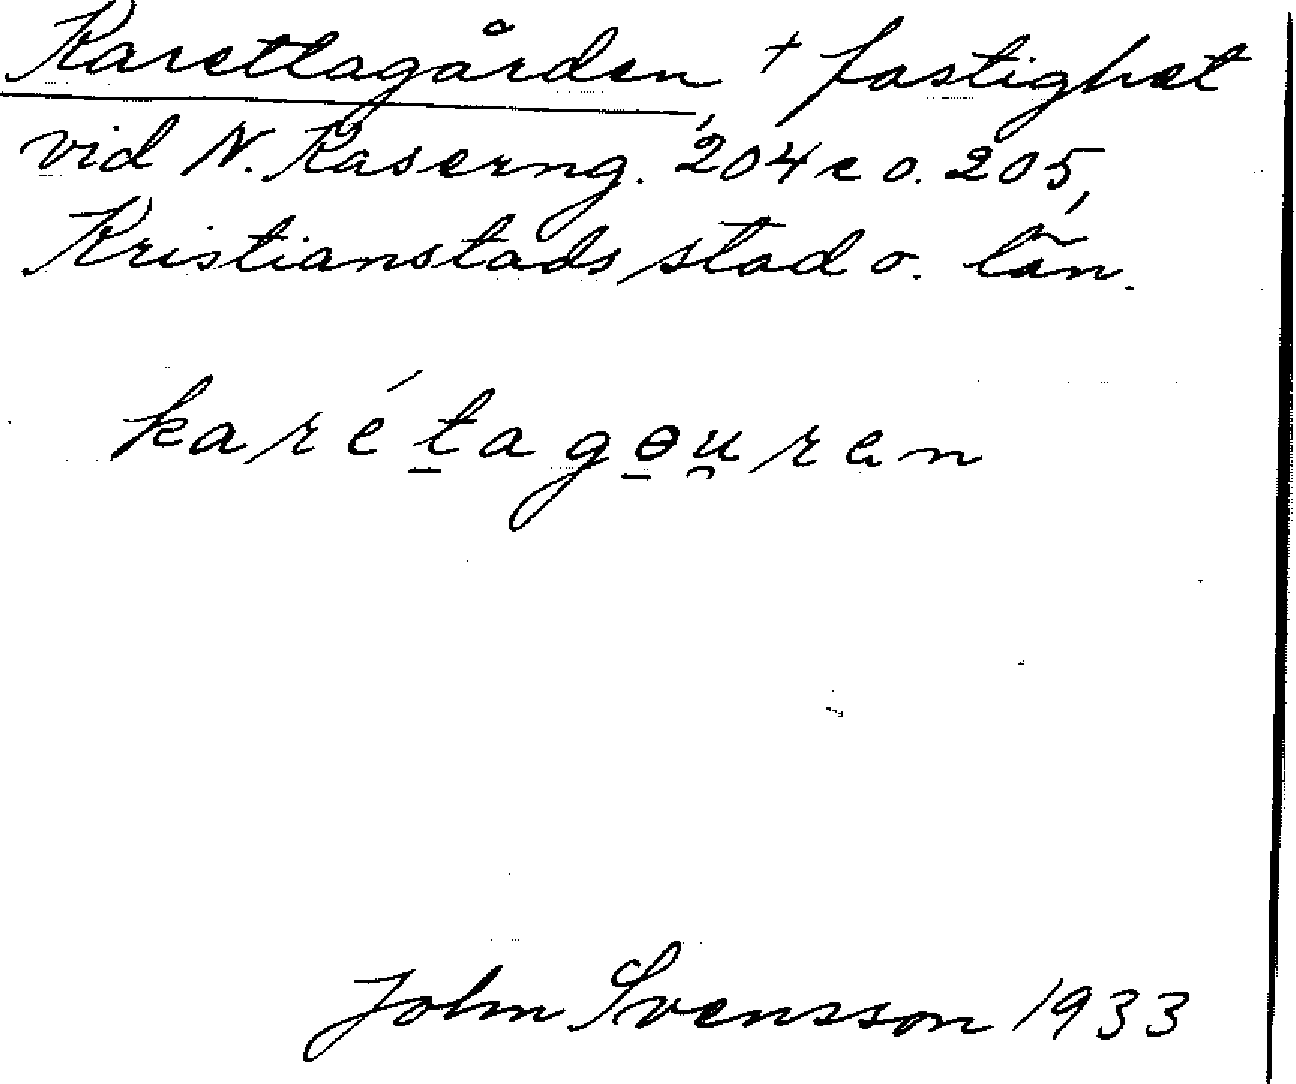 Karettagården, + fastighet
vid N. Kaserng. 204 c o. 205,
Kristianstads stad o. län.
karétagɵu̯ren
John Svensson 1933